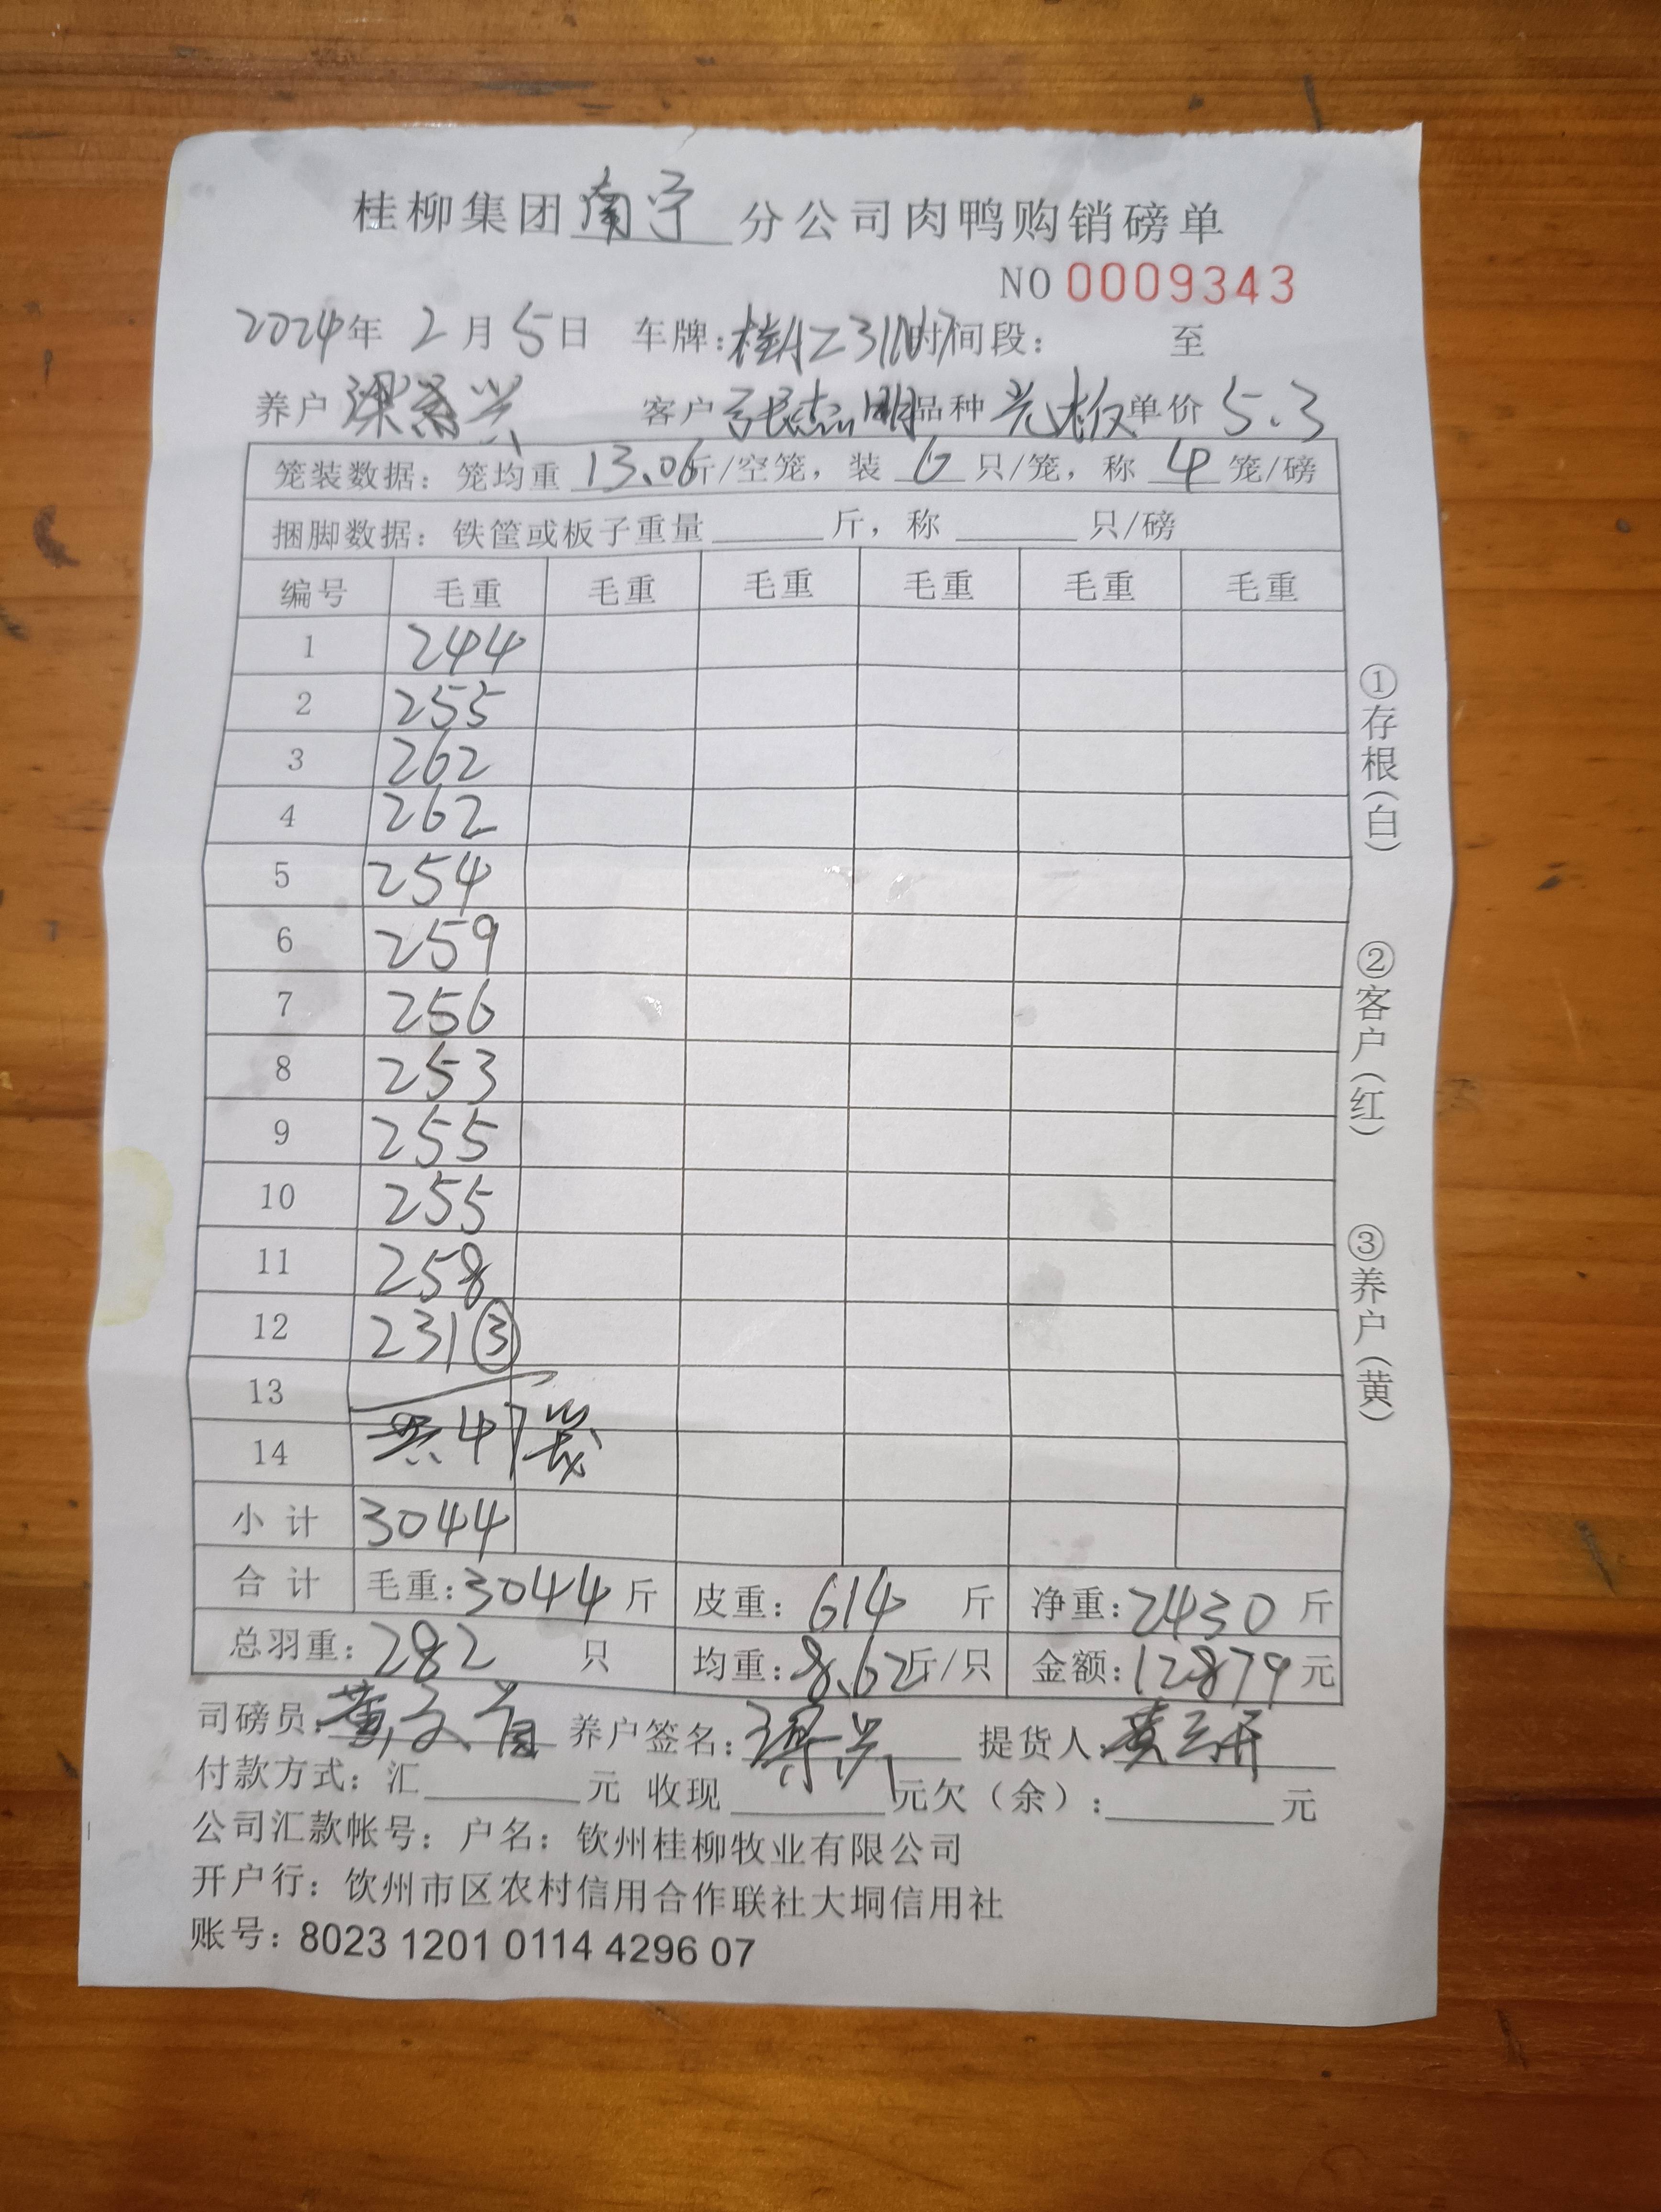 桂柳集团南宁分公司肉鸭购销磅单
NO 0009343
2024年 2月5日 车牌:桂AZ311 时间段: 至
养户 梁 兴 客户 张志明 品种 光板 单价 5.3
笼装数据: 笼均重 13.06 斤/空笼, 装 6 只/笼, 称 4 笼/磅
捆脚数据: 铁筐或板子重量 斤, 称 只/磅
编号 毛重 毛重 毛重 毛重 毛重 毛重
1 244
2 255
3 262
4 262
5 254
6 259
7 256
8 253
9 255
10 255
11 258
12 231 ③
13
14 共47
小计 3044
合计 毛重:3044 斤 皮重: 614 斤 净重:2430 斤
总羽重: 282 只 均重:8.62斤/只 金额:12879元
司磅员: 黄文 养户签名: 梁 兴 提货人: 黄
付款方式: 汇 元 收现 元欠(余): 元
公司汇款帐号: 户名: 钦州桂柳牧业有限公司
开户行: 饮州市区农村信用合作联社大垌信用社
账号: 8023 1201 0114 4296 07
①存根(白)
②客户(红)
③养户(黄)